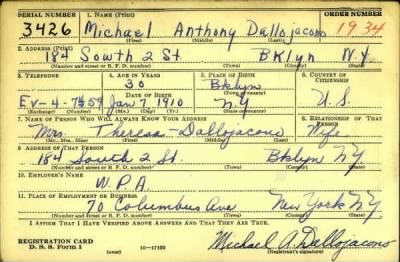 SERIAL NUMBER 1. NAME (Print) ORDER NUMBER
3426 Michael Anthony Dallojacono 1934
(First) (Middle) (Last)
2. ADDRESS (Print)
184 South 2 St Bklyn N.Y.
(Number and street or R. F. D. number) (Town) (County) (State)
3. TELEPHONE 4. AGE IN YEARS 5. PLACE OF BIRTH 6. COUNTRY OF CITIZENSHIP
30 Bklyn
DATE OF BIRTH (Town or county)
EV-4-7659 Jan 7 1910 NY U.S.
(Exchange) (Number) (Mo.) (Day) (Yr.) (State or country)
7. NAME OF PERSON WHO WILL ALWAYS KNOW YOUR ADDRESS 8. RELATIONSHIP OF THAT PERSON
Mrs. Theresa Dallojacono Wife
(Mr., Mrs., Miss) (First) (Middle) (Last)
9. ADDRESS OF THAT PERSON
184 South 2 St. Bklyn NY
(Number and street or R. F. D. number) (Town) (County) (State)
10. EMPLOYER'S NAME
W.P.A.
11. PLACE OF EMPLOYMENT OR BUSINESS
70 Columbus Ave New York NY
(Number and street or R. F. D. number) (Town) (County) (State)
I AFFIRM THAT I HAVE VERIFIED ABOVE ANSWERS AND THAT THEY ARE TRUE.
REGISTRATION CARD
D. S. S. FORM 1 (over) 16-17105 Michael A. Dallojacono
(Registrant's signature)